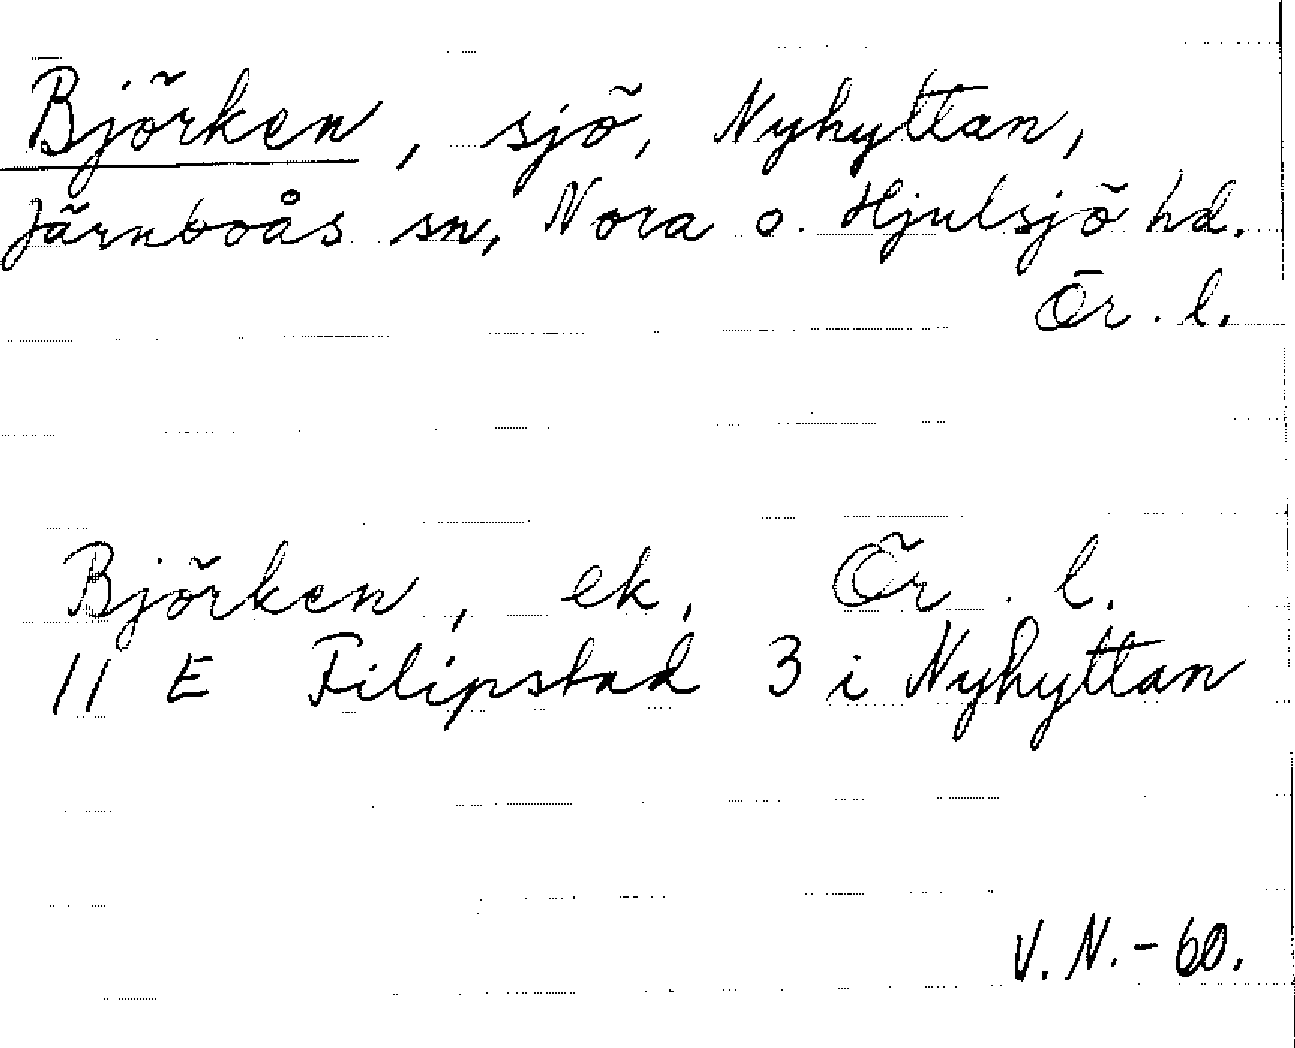 Björken, sjö, Nyhyttan,
Järnboås sn, Nora o. Hjulsjö hd.
Ör. l.
Björken, ek, Ör. l.
11 E Filipstad 3 i Nyhyttan
V. N. - 60.